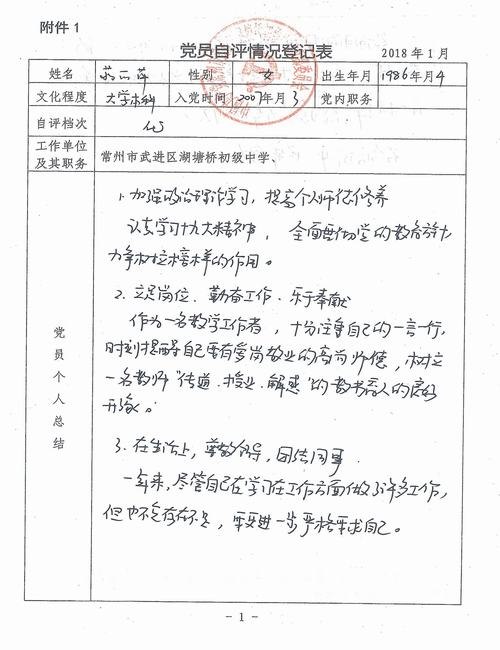 附件1
党员自评情况登记表 2018年1月
姓名 性别 女 出生年月 1986年月4
文化程度 大学本科 入党时间 2007年月3 党内职务
自评档次
工作单位及其职务 常州市武进区湖塘桥初级中学、
党员个人总结
1.加强政治理论学习，提高个人师德修养
认真学习十九大精神，全面贯彻党的教育方针
力争树立榜样的作用。
2.立足岗位、勤奋工作、乐于奉献
作为一名教学工作者，十分注重自己的一言一行，
时刻提醒自己要有爱岗敬业的高尚师德，树立
一名教师“传道、授业、解惑”的教书育人的良好
形象。
3.在生活上，尊敬领导，团结同事.
一年来，尽管自己在学习在工作方面做了许多工作，
但也不免存在不足，要进一步严格要求自己。
- 1 -